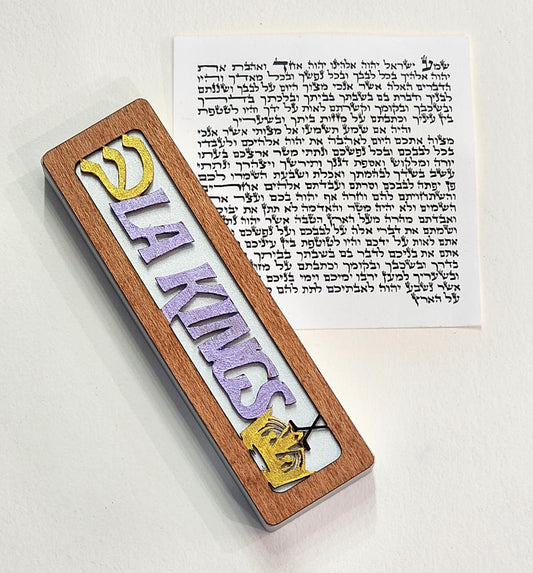 שמע ישראל יהוה אלהינו יהוה אחד ואהבת את
יהוה אלהיך בכל לבבך ובכל נפשך ובכל מאדך והיו
הדברים האלה אשר אנכי מצוך היום על לבבך ושננתם
לבניך ודברת בם בשבתך בביתך ובלכתך בדרך
ובשכבך ובקומך וקשרתם לאות על ידך והיו לטטפת
בין עיניך וכתבתם על מזזות ביתך ובשעריך
והיה אם שמע תשמעו אל מצותי אשר אנכי
מצוה אתכם היום לאהבה את יהוה אלהיכם ולעבדו
בכל לבבכם ובכל נפשכם ונתתי מטר ארצכם בעתו
יורה ומלקוש ואספת דגנך ותירשך ויצהרך ונתתי
עשב בשדך לבהמתך ואכלת ושבעת השמרו לכם
פן יפתה לבבכם וסרתם ועבדתם אלהים
והשתחויתם להם וחרה אף יהוה בכם ועצר את
השמים ולא יהיה מטר והאדמה לא תתן את
ואבדתם מהרה מעל הארץ הטבה אשר יהוה
ושמתם את דברי אלה על לבבכם ועל נפשכם
אתם לאות על ידכם והיו לטוטפת בין עיניכם
את בניכם לדבר בם בשבתך בביתך
בדרך ובשכבך ובקומך וכתבתם על
ובשעריך למען ירבו ימיכם וימי בניכם
אשר נשבע יהוה לאבתיכם לתת להם
על הארץ
ש
LA KINGS